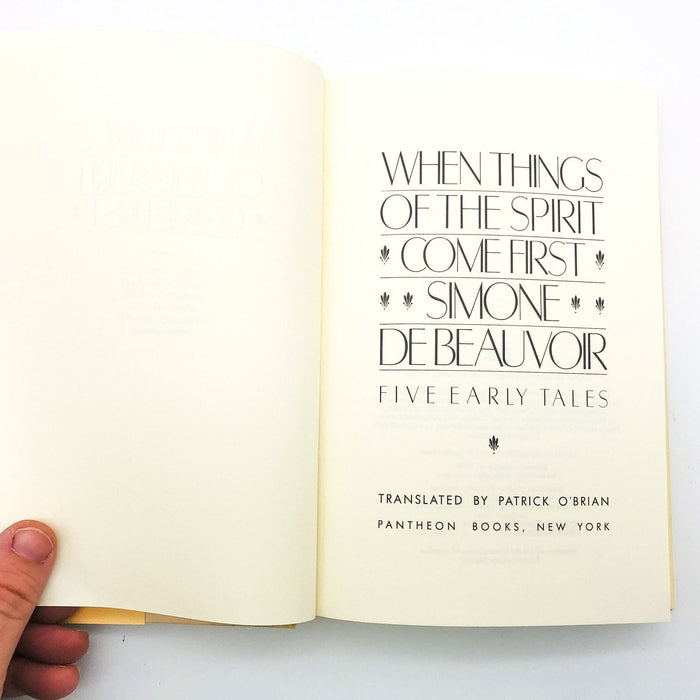 WHEN THINGS
OF THE SPIRIT
COME FIRST
SIMONE
DE BEAUVOIR
FIVE EARLY TALES
TRANSLATED BY PATRICK O'BRIAN
PANTHEON BOOKS, NEW YORK